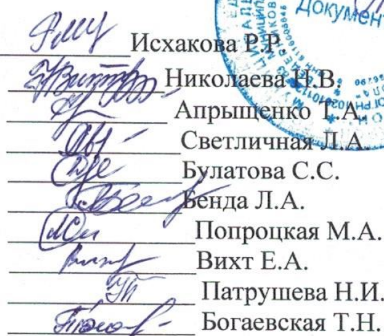 Докумен
Исхакова Р.Р.
Николаева Н.В.
Апрыщенко Т.А.
Светличная Л.А.
Булатова С.С.
Бенда Л.А.
Попроцкая М.А.
Вихт Е.А.
Патрушева Н.И.
Богаевская Т.Н.